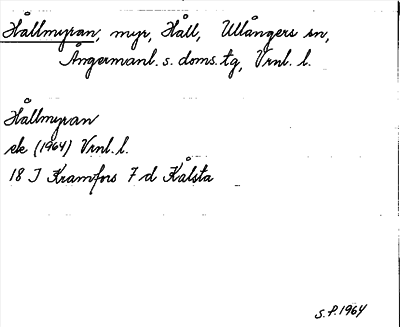 Hållmyran, myr, Håll, Ullångers sn,
Ångermanl. s. doms. tg, Vrnl. l.
Hållmyran
ek (1964) Vrnl. l.
18 I Kramfors 7 d Kålsta
S.P. 1964